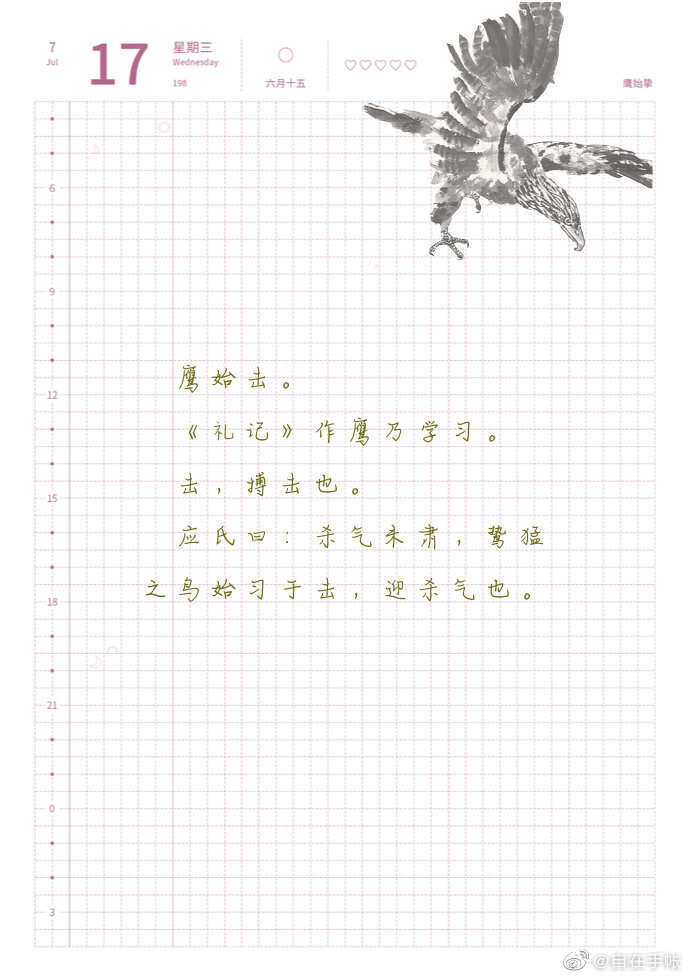 7
Jul
17
星期三
Wednesday
198
六月十五
鹰始挚
6
9
12
15
18
21
0
3
鹰始击。
《礼记》作鹰乃学习。
击，搏击也。
应氏曰：杀气未肃，鸷猛
之鸟始习于击，迎杀气也。
@自在手帐